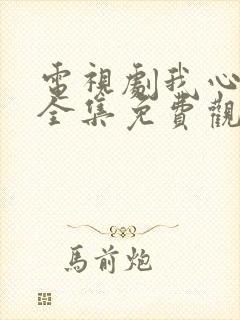 電視劇我心
全集免費觀
馬前炮